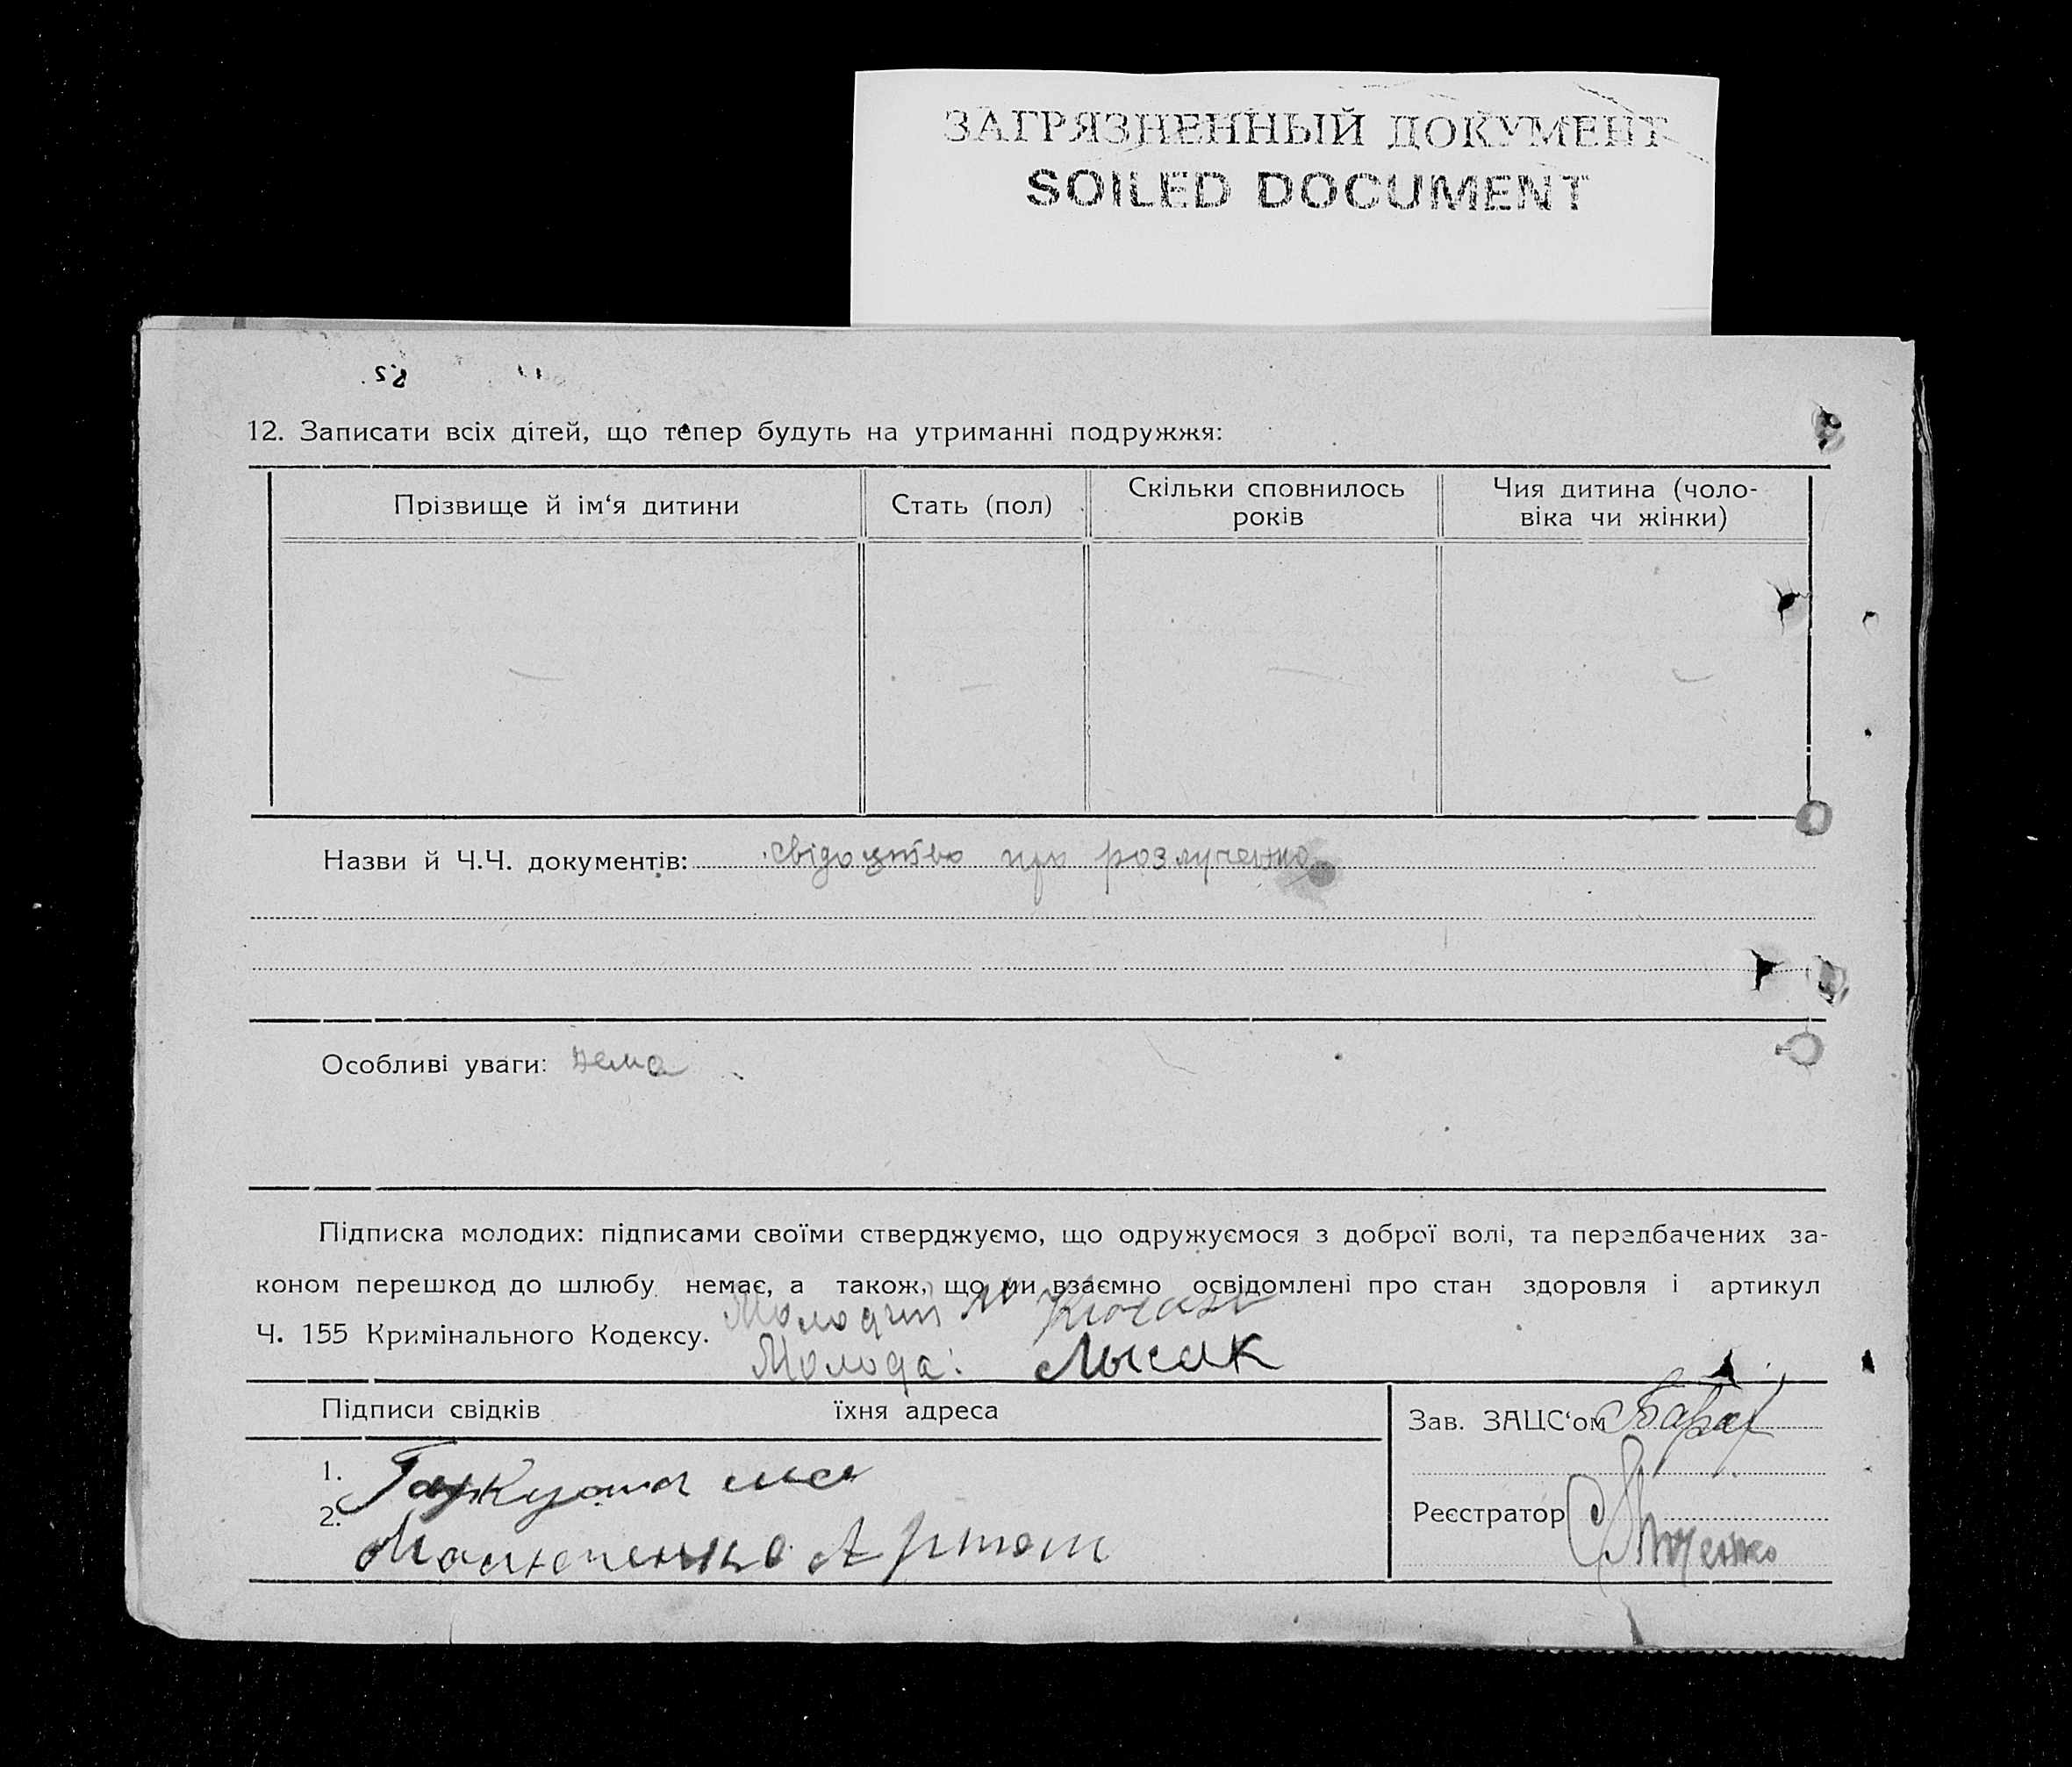 ЗАГРЯЗНЕННЫЙ ДОКУМЕНТ
SOILED DOCUMENT
12. Записати всіх дітей, що тепер будуть на утриманні подружжя:
Прізвище й ім‘я дитини
Стать (пол)
Скільки сповнилось
років
Чия дитина (чоло-
віка чи жінки)
Назви й Ч.Ч. документів: свідоцтво про розлучення
Особливі уваги: нема
Підписка молодих: підписами своїми стверджуємо, що одружуємося з доброї волі, та передбачених за-
коном перешкод до шлюбу немає, а також, що ми взаємно освідомлені про стан здоровля і артикул
Ч. 155 Кримінального Кодексу. Молодий
Молода: Лысак
Підписи свідків
їхня адреса
Зав. ЗАЦС‘ом
1.
2.
Реєстратор